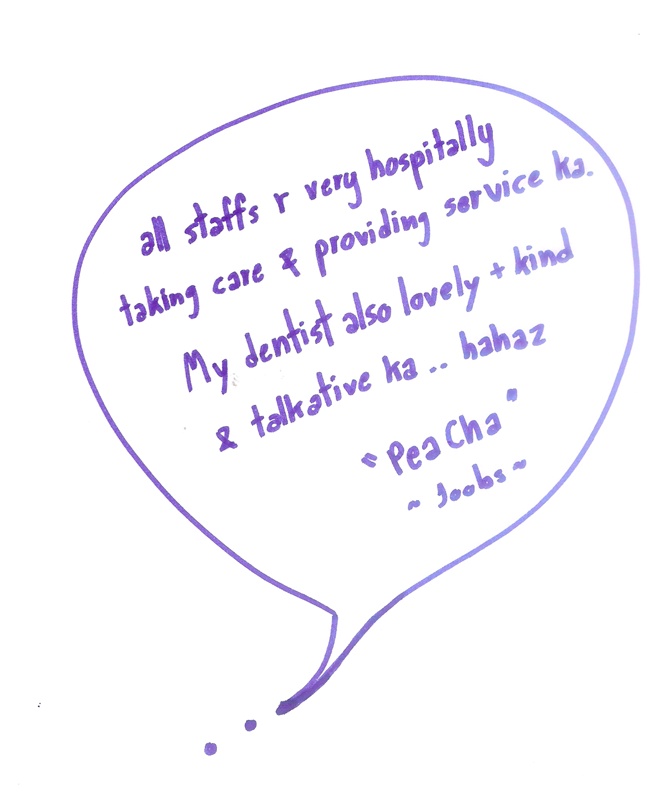 all staffs r very hospitally
taking care & providing service ka.
My dentist also lovely + kind
& talkative ka .. hahaz
"Pea Cha"
~ Joobs ~